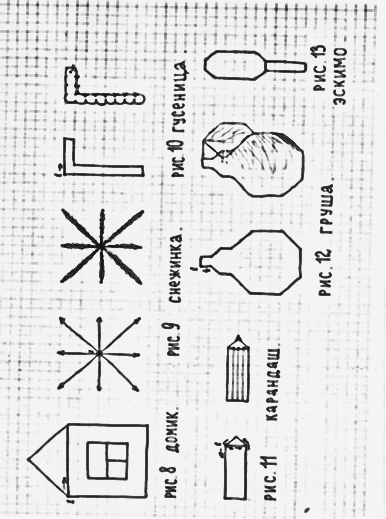 Рис. 8 домик.
Рис. 9 снежинка.
Рис 10 гусеница.
Рис. 11 карандаш.
Рис. 12 груша.
Рис. 13 эскимо